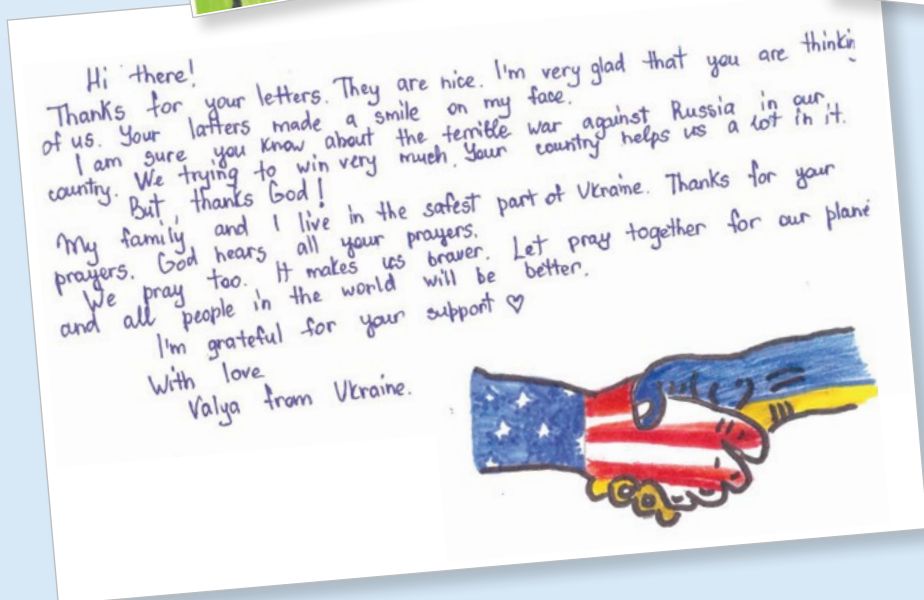 Hi there!
Thanks for your letters. They are nice. I'm very glad that you are thinkin
of us. Your latters made a smile on my face.
I am sure you know about the terrible war against Russia in our
country. We trying to win very much. Your country helps us a lot in it.
But, thanks God!
My family and I live in the safest part of Ukraine. Thanks for your
prayers. God hears all your prayers.
We pray too. It makes us braver. Let pray together for our plane
and all people in the world will be better.
I'm grateful for your support ♡
With love
Valya from Ukraine.